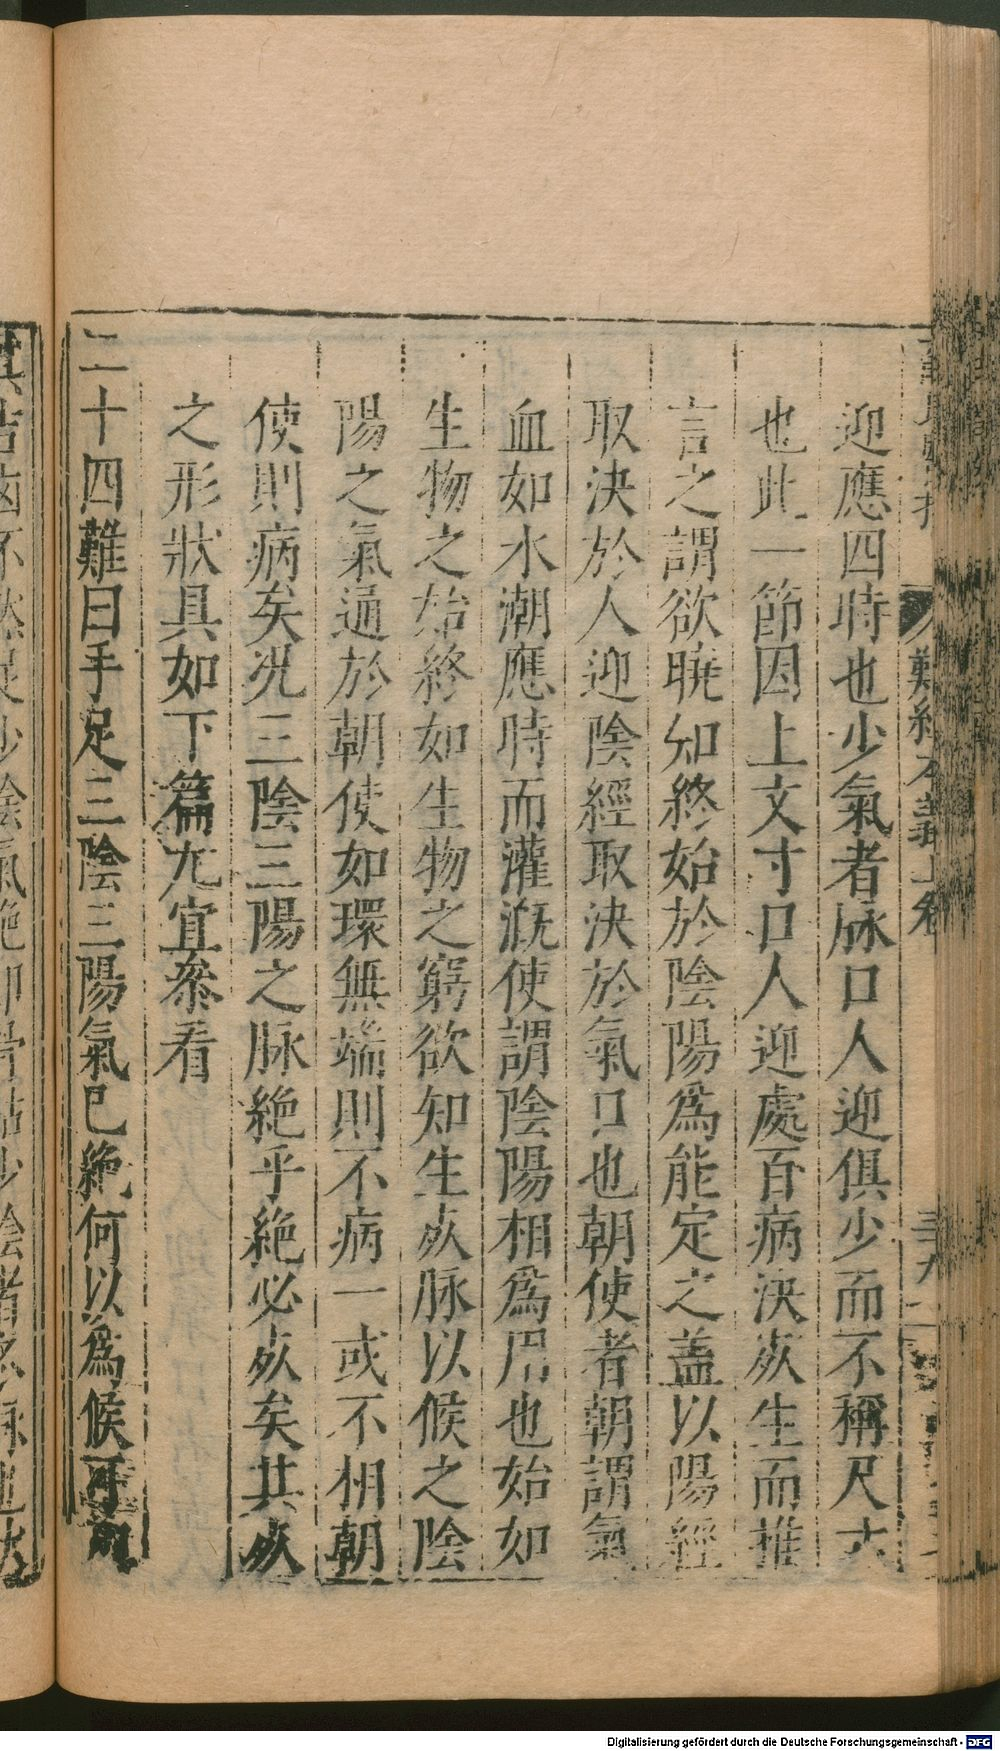 難經本義上卷
迎應四時也少氣者脉口人迎俱少而不稱尺寸
也此一節因上文寸口人迎處百病決死生而推
言之謂欲曉知終始於陰陽爲能定之蓋以陽經
取決於人迎陰經取決於氣口也朝使者朝謂氣
血如水潮應時而灌漑使謂陰陽相爲用也始如
生物之始終如生物之窮欲知生死脉以候之陰
陽之氣通於朝使如環無端則不病一或不相朝
使則病矣况三陰三陽之脉絶乎絶必死矣其死
之形狀具如下篇尤宜叅看
二十四難曰手足三陰三陽氣已絶何以爲候可
Digitalisierung gefördert durch die Deutsche Forschungsgemeinschaft - DFG